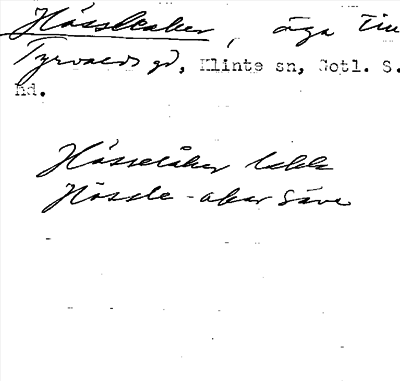 Hässleaker, äga till
Tyrvalds gd, Klinte sn, Gotl. S.
hd.
Hässelåker Lskk
Hässle-akar Säve